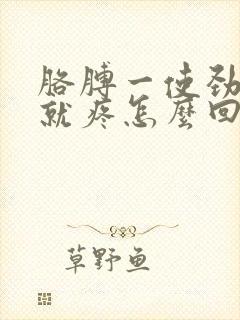 胳膊一使劲
就疼怎麼回
草野鱼